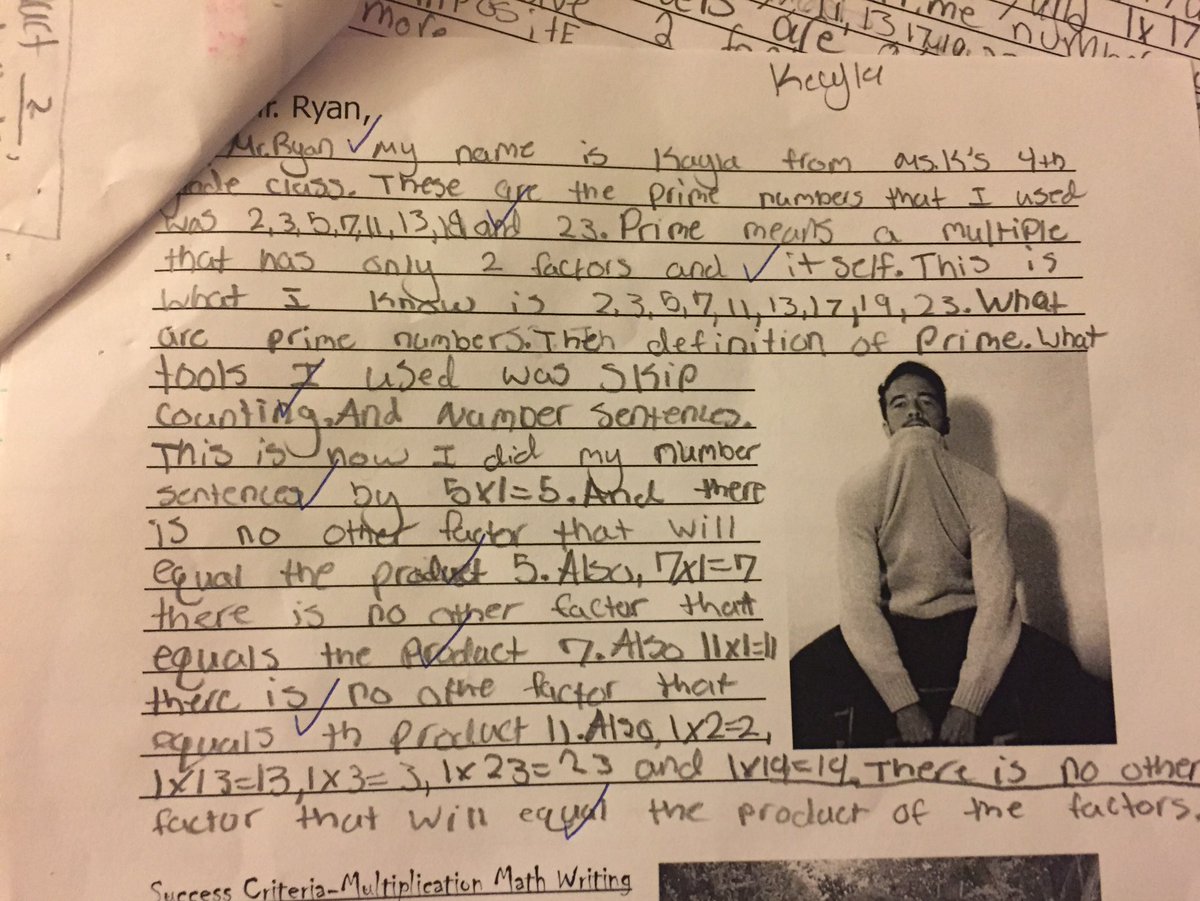 more
itE
2
are
13 17
1x17
2
Kayla
r. Ryan,
Mr. Ryan My name is Kayla from Ms.K's 4th
grade class. These are the prime numbers that I used
was 2,3,5,7,11,13,19 and 23. Prime means a multiple
that has only 2 factors and it self. This is
what I know is 2,3,5,7,11,13,17,19,23. What
are prime numbers. Then definition of Prime. What
tools I used was skip
counting. And Number Sentences.
This is how I did my number
sentences by 5x1=5. And there
is no other factor that will
equal the product 5. Also, 7x1=7
there is no other factor that
equals the Product 7. Also 11x1=11
there is no othe factor that
equals th product 11. Also, 1x2=2,
1x13=13, 1x3=3, 1x23=23 and 1x19=19. There is no other
factor that will equal the product of the factors.
Success Criteria-Multiplication Math Writing